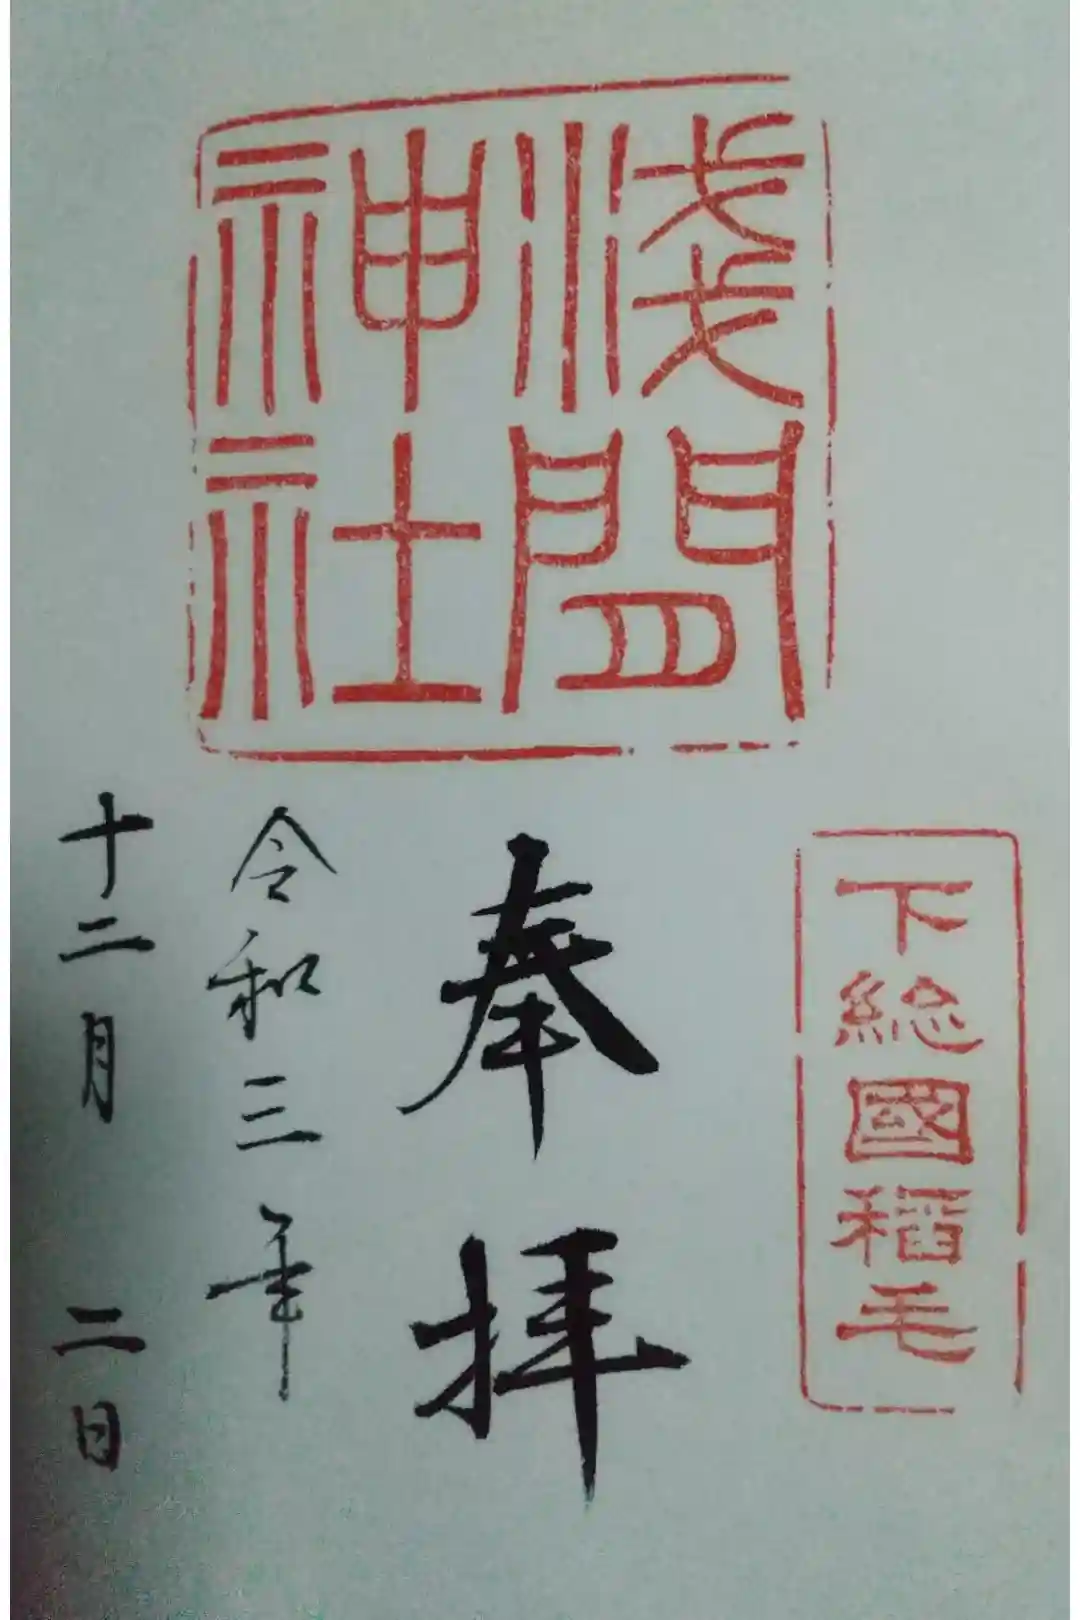 淺間
神社
下総國稻毛
奉拝
令和三年
十二月二日